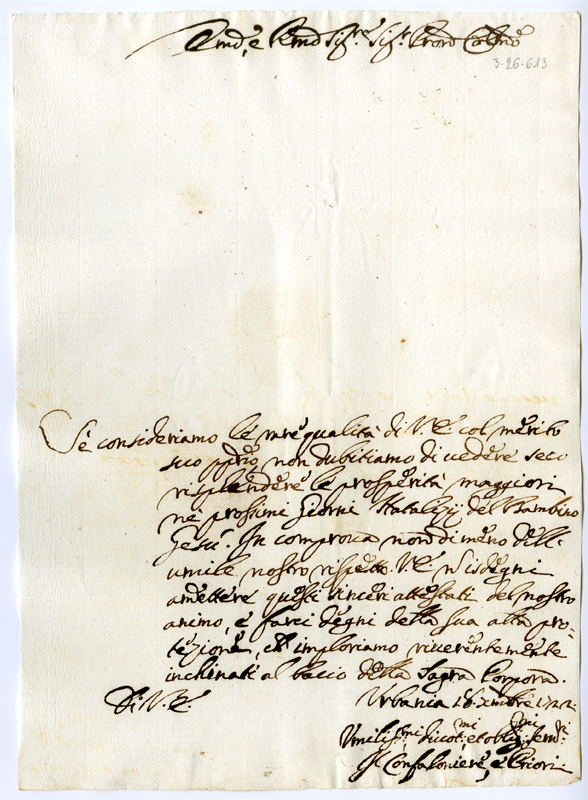 Em̃o, e Rm̃o Sig.re Sig.r Pron̄ Colm̃o
3-26-613
Se consideriamo le rare qualità di V. E. col merito
suo pp̄rio non dubitiamo di vedere seco
risplendere le prosperità maggiori
ne prossimi Giorni Natalizij del Bambino
Gesù. In comprova non di meno dell'
umile nostro rispetto V. E. n̄ isdegni
amettere questi sinceri attestati del nostro
animo, e farci degni della sua alta pro-
tezione, ch' imploriamo riverentemente
inchinati al bacio della Sagra Porpora.
Di V. E.
Urbania 16 Xmbre 1722
Umiliss.mi divot.mi et oblig.mi Serv.ri
Il Confaloniere, e Priori